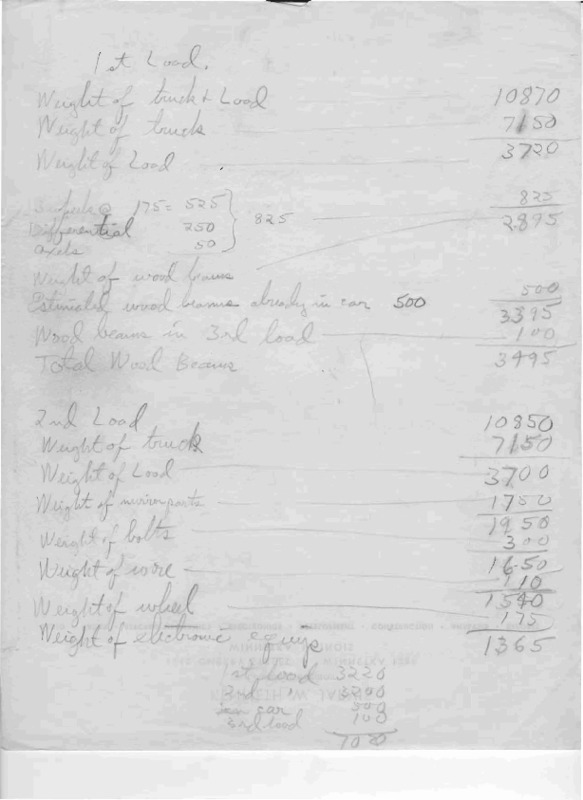 1st Load.
Weight of truck + Load 10870
Weight of truck 7150
Weight of Load 3720
@ 175 = 525 825
Differential 250 825 2895
axels 50
Weight of wood beams
Estimated wood beams already in car 500 500
3395
Wood beams in 3rd load 100
Total Wood Beams 3495
2nd Load 10850
Weight of truck 7150
Weight of Load 3700
Weight of mirror parts 1750
1950
Weight of bolts 300
1650
Weight of wire 110
1540
Weight of wheel 175
Weight of electronic equip 1365
1st load 3220
2nd " 3200
in car 500
3rd load 100
7020